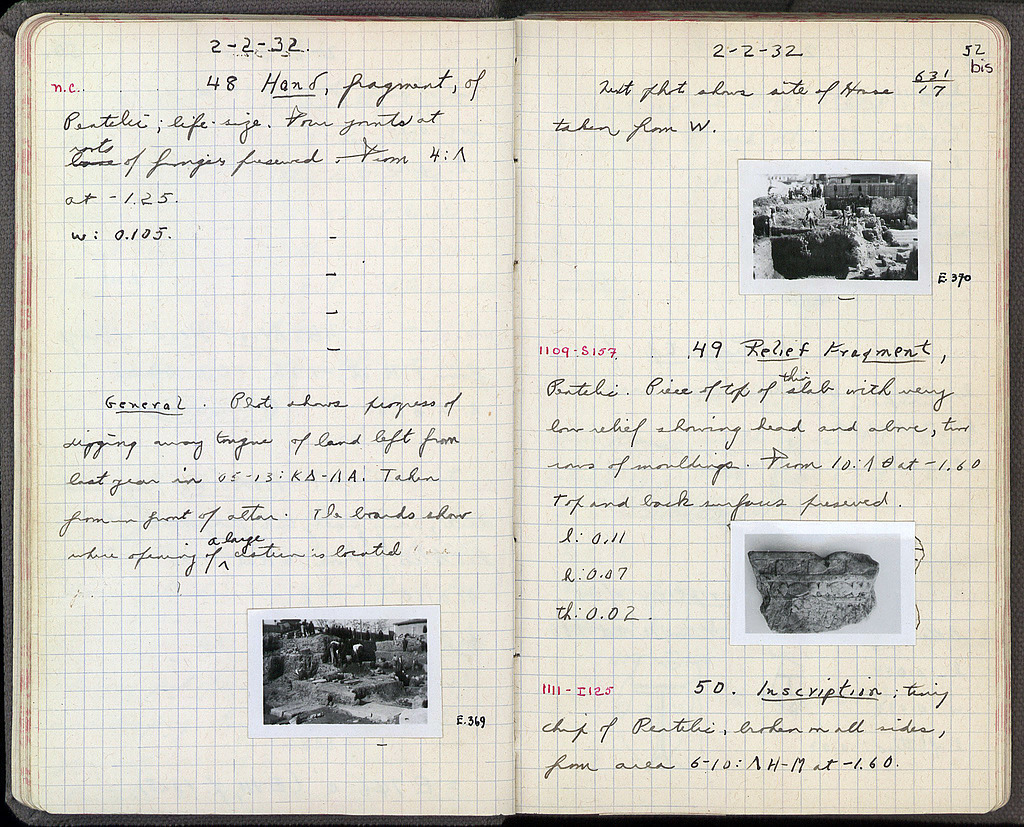 2-2-32.
n.c. 48 Hand, fragment, of
Pentelic; life-size. Four joints at
roots
of fingers preserved. From 4:Λ
at -1.25.
w: 0.105.
General. Phot. shows progress of
digging away tongue of land left from
last year in 05-13: ΚΔ-ΛΑ. Taken
from in front of altar. The boards show
a large
where opening of cistern is located
E.369
2-2-32
52
bis
Next phot shows site of House 631/17
taken from W.
E.370
1109-S157 49 Relief Fragment,
thin
Pentelic. Piece of top of slab with very
low relief showing head and above, two
rows of mouldings. From 10:ΛΘ at -1.60
Top and back surfaces preserved.
l: 0.11
h: 0.07
th: 0.02.
1111-I125 50. Inscription; tiny
chip of Pentelic, broken on all sides,
from area 6-10: ΛΗ-Μ at -1.60.